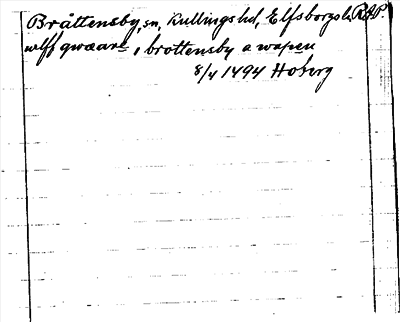 Bråttensby, sn, Kullings hd, Elfsborgs l. RAP.
ulff qwarn i brottensby a wapen
8/4 1494 Hoberg